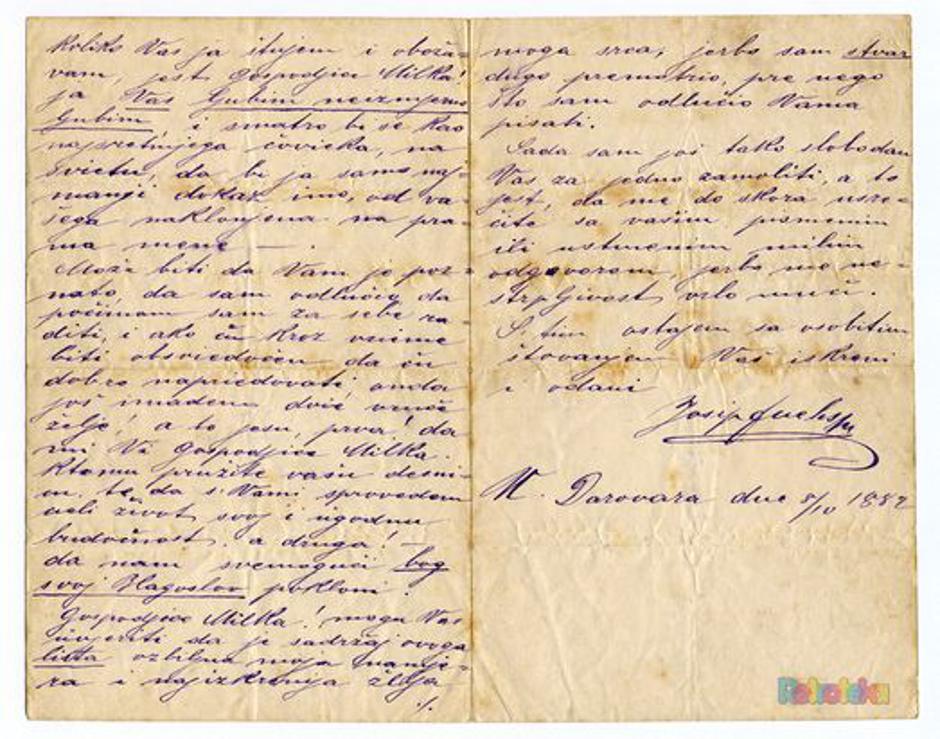 Koliko Vas ja štujem i oboža-
vam, jest Gospodjice Milka!
ja Vas ljubim neizmjerno
ljubim, i smatro bi se kao
najsretnijega čovieka, na
svietu, da bi ja samo naj-
manji dokaz imo, od va-
šega naklonjena na pra-
ma mene — .
Može biti da Vam je poz-
nato, da sam odlučio da
počimam sam za sebe ra-
diti, i ako ću kroz vrieme
biti obsviedočen da ću
dobro napriedovati onda
još imadem dvie vruće
želje! a to jesu, prva! da
mi Vi Gospodjice Milka
ktomu pružite vašu desni-
cu, te da s Vami sprovedem
cieli život svoj i ugodnu
budućnost, a druga! —
da nam svemogući bog
svoj blagoslov pokloni!
Gospodjice Milka! mogu Vas
uvjeriti da je sadržaj ovoga
lista ozbiljna moja namje-
ra i najizkrenija želja
./.
moga srca, jerbo sam stvar
dugo premotrio, pre nego
što sam odlučio Vama
pisati.
Sada sam još tako slobodan
Vas za jedno zamoliti, a to
jest, da me do skora usre-
ćite sa vašim pismenim
ili ustmenim milim
odgovorom, jerbo me ne-
strpljivost vrlo muči.
S tim ostajem sa osobitim
štovanjem Vaš iskreni
i odani
Josip Fuchs
Darovara dne 8/10 1882
Retroteka